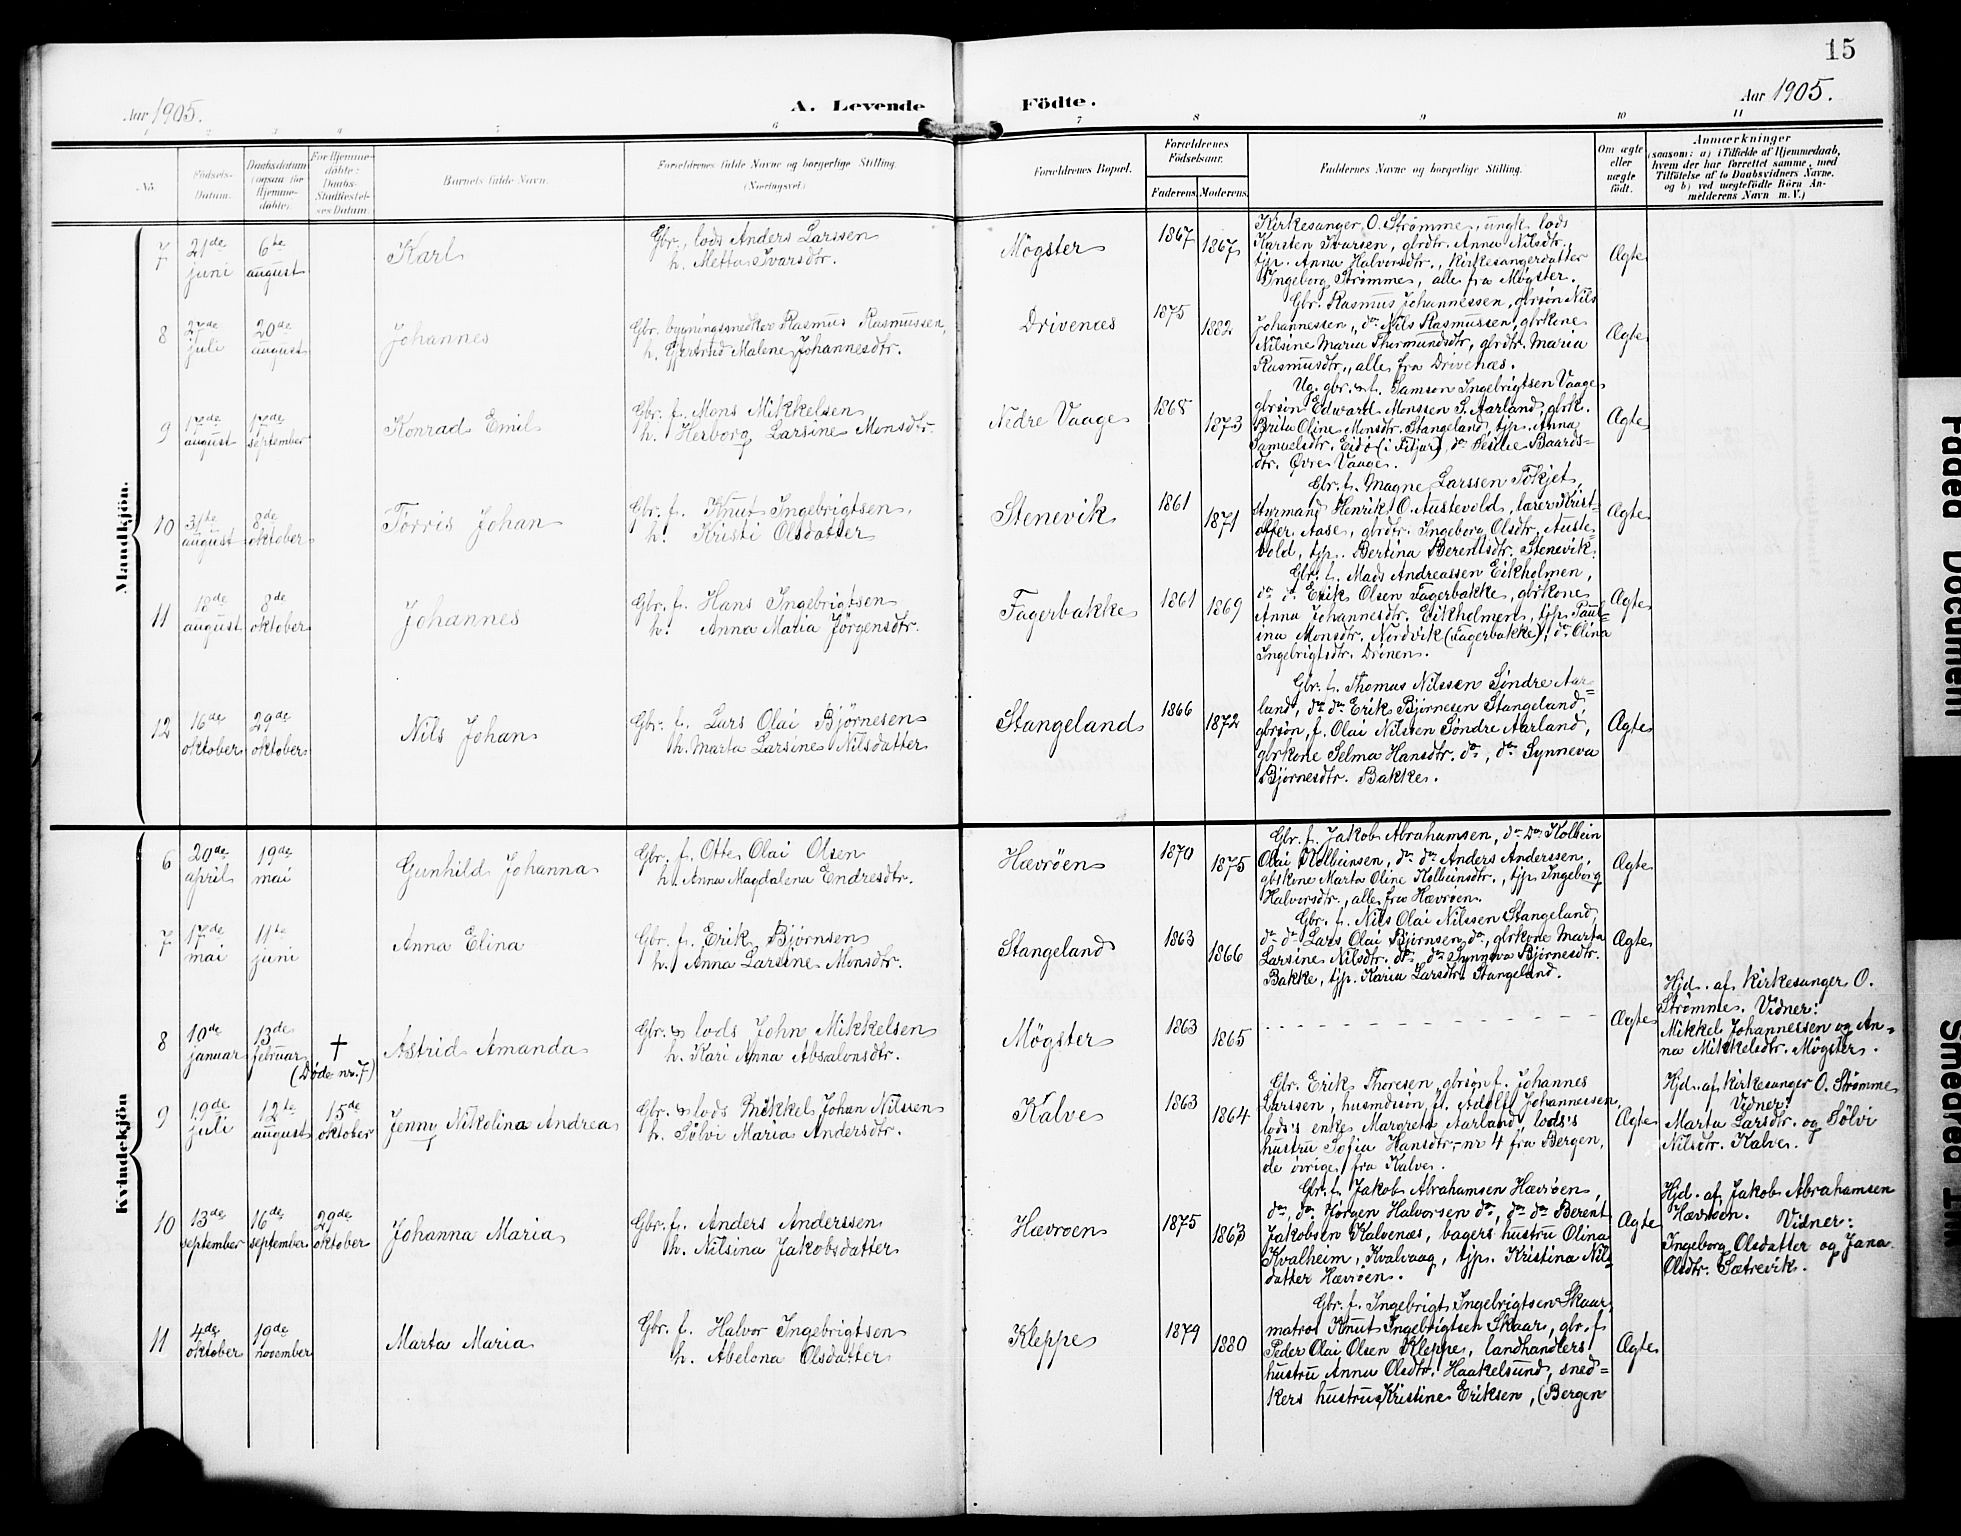 15
Aar 1905.
A. Levende Födte.
Aar 1905.
No.
Födsels-Datum.
Daabsdatum (ogsaa for Hjemmedøbte).
For Hjemmedöbte: Daabs-Stadfæstelses Datum.
Barnets fulde Navn.
Forældrenes fulde Navne og borgerlige Stilling. (Næringsvei)
Forældrenes Bopæl.
Forældrenes Födselsaar.
Faderens. Moderens.
Faddernes Navne og borgerlige Stilling.
Om ægte eller uægte födt.
Anmærkninger
(saasom: a) i Tilfælde af Hjemmedaab,
hvem der har forrettet samme, med
Tilföielse af to Daabsvidners Navne,
og b) ved uægtefödte Börn An-
melderens Navn m. V.)
Mandkjön.
7
21de juni
6te august
Karl
Gbr., lods Anders Larssen
h. Metta Ivarsdtr.
Møgster
1867
1867
Kirkesanger O. Strømme, ungk. lods
Karsten Ivarsen, gbrdtr. Anna Nilsdtr.,
tjp. Anna Halvorsdtr., kirkesangerdatter
Ingeborg Strømme, alle fra Møgster.
Ægte
8
27de juli
20de august
Johannes
Gbr. bygningssnedker Rasmus Rasmussen,
h. Gjertrud Malene Johannesdtr.
Drivenæs
1875
1882
Gbr. Rasmus Johannessen, gbrsøn Nils
Johannessen, do Nils Rasmussen, gbrkone
Nilsine Maria Thormundsdtr, gbrdtr. Maria
Rasmusdtr., alle fra Drivenæs.
Ægte
9
17de august
17de september
Konrad Emil
Gbr. f. Mons Mikkelsen
h. Herborg Larsine Monsdtr.
Nedre Vaage
1868
1873
Ug. gbr. & f. Samson Ingebrigtsen Vaage,
gbrsøn Edward Monssen S. Aarland, gbrk.
Brita Oline Monsdtr. Stangeland, tjp. Anna
Samuelsdtr. Eidø (i Fitjar), do Sesilie Baards-
dtr. Øvre Vaage.
Ægte
10
31te august
8de oktober
Torris Johan
Gbr. f. Knut Ingebrigtsen,
h. Kristi Olsdatter
Stenevik
1861
1871
Gbr. f. Magne Larssen Tokjet,
styrmand Henrik O. Austevold, lærer Krist-
offer Aase, gbrdtr. Ingeborg Olsdtr. Auste-
vold, tjp. Bertina Berentsdtr. Stenevik.
Ægte
11
18de august
8de oktober
Johannes
Gbr. f. Hans Ingebrigtsen
h. Anna Maria Jørgensdtr.
Fagerbakke
1861
1869
Gbr. f. Mads Andreassen Eikholmen,
do do Erik Olsen Fagerbakke, gbrkone
Anna Johannesdtr. Eikholmen, tjp. Paul-
ina Monsdtr. Nordvik (Fagerbakke), do Olina
Ingebrigtsdtr. Drönen.
Ægte
12
16de oktober
29de oktober
Nils Johan
Gbr. f. Lars Olai Bjørnesen
h. Marta Larsine Nilsdatter
Stangeland
1866
1872
Gbr. f. Thomas Nilssen Søndre Aar-
land, do do Erik Bjørnesen Stangeland,
gbrsøn, f. Olai Nilssen Søndre Aarland,
gbrkone Selma Hansdtr. do, do Synneva
Bjørnesdtr. Bakke.
Ægte
Kvindekjön
6
20de april
19de mai
Gunhild Johanna
Gbr. f. Otte Olai Olsen
h. Anna Magdalena Endresdtr.
Hævrøen
1870
1875
Gbr. f. Jakob Abrahamsen, do Do Kolbein
Olai Kolbeinsen, do do Anders Anderssen,
gbrkone Marta Oline Kolbeinsdtr., tjp. Ingeborg
Halvorsdtr., alle fra Hævrøen.
Ægte
7
17de mai
11te juni
Anna Elina
Gbr. f. Erik Bjørnsen
h. Anna Larsine Monsdtr.
Stangeland
1863
1866
Gbr. f. Nils Olai Nilssen Stangeland,
do do Lars Olai Bjørnsen do, gbrkone Marta
Larsine Nilsdtr. do, do Synneva Bjørnesdtr.
Bakke, tjp. Karia Larsdtr. Stangeland.
Ægte
8
10de januar
13de februar
†
(Døde nr. 7)
Astrid Amanda
Gbr. & lods John Mikkelsen
h. Kari Anna Absalonsdtr.
Møgster
1863
1865
Ægte
Hjd. af kirkesanger O.
Strømme. Vidner:
Mikkel Johannessen og An-
na Mikkelsdtr. Møgster.
9
19de juli
12te august
15de oktober
Jenny Nikolina Andrea
Gbr. & lods Mikkel Johan Nilssen
h. Sølvi Maria Andersdtr.
Kalve
1863
1864
Gbr. Erik Thoresen, gbrsøn f. Johannes
Larssen, husmdsøn, f. Adolf Johannessen,
lods's enke Margreta Aarland, lods's
hustru Sofia Hansdtr, - nr 4 fra Bergen,
de øvrige fra Kalve.
Ægte
Hjd. af kirkesanger O. Strømme
Vidner:
Marta Larsdtr. og Sølvi
Nilsdtr. Kalve.
10
13de september
16de september
29de oktober
Johanna Maria
Gbr. f. Anders Anderssen
h. Nilsina Jakobsdatter
Hævrøen
1875
1863
Gbr. f. Jakob Abrahamsen Hævrøen,
do, do Jørgen Halvorsen do, do do Berent
Jakobsen Kalvenæs, bagers hustru Olina
Kvalheim, Kvalvaag, tjp. Kristina Nils-
datter Hævrøen.
Ægte
Hjd. af Jakob Abrahamsen
Hævrøen. Vidner:
Ingeborg Olsdatter og Jana
Olsdtr. Sætrevik.
11
4de oktober
19de november
Marta Maria
Gbr. f. Halvor Ingebrigtsen
h. Abelona Olsdatter
Kleppe
1879
1880
Gbr. f. Ingebrigt Ingebrigtsen Skaar,
matros Knut Ingebrigtsen Skaar, gbr. f.
Peder Olai Olsen Kleppe, landhandlers
hustru Anna Olsdtr. Haakelsund, sned-
kers hustru Kristine Eriksen, (Bergen
Ægte
Faded Document
Smeared Ink